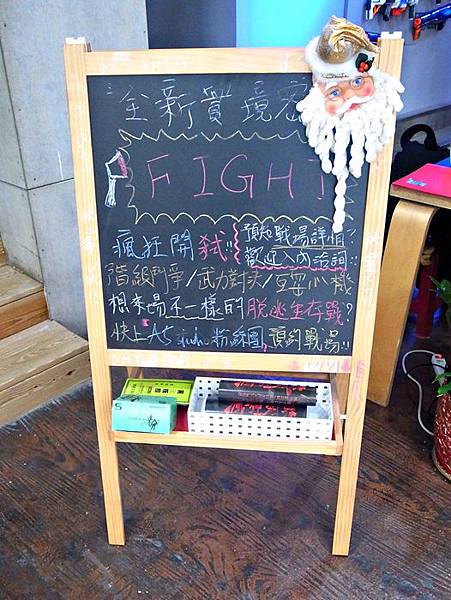 全新實境密
FIGH!
瘋狂開弒!! 預知戰場詳情?
歡迎入內洽詢!!
階級鬥爭/武力對決/互耍心機
想來場不一樣的脫逃生存戰?
快上A5 studio粉絲團,預約戰場!!
5